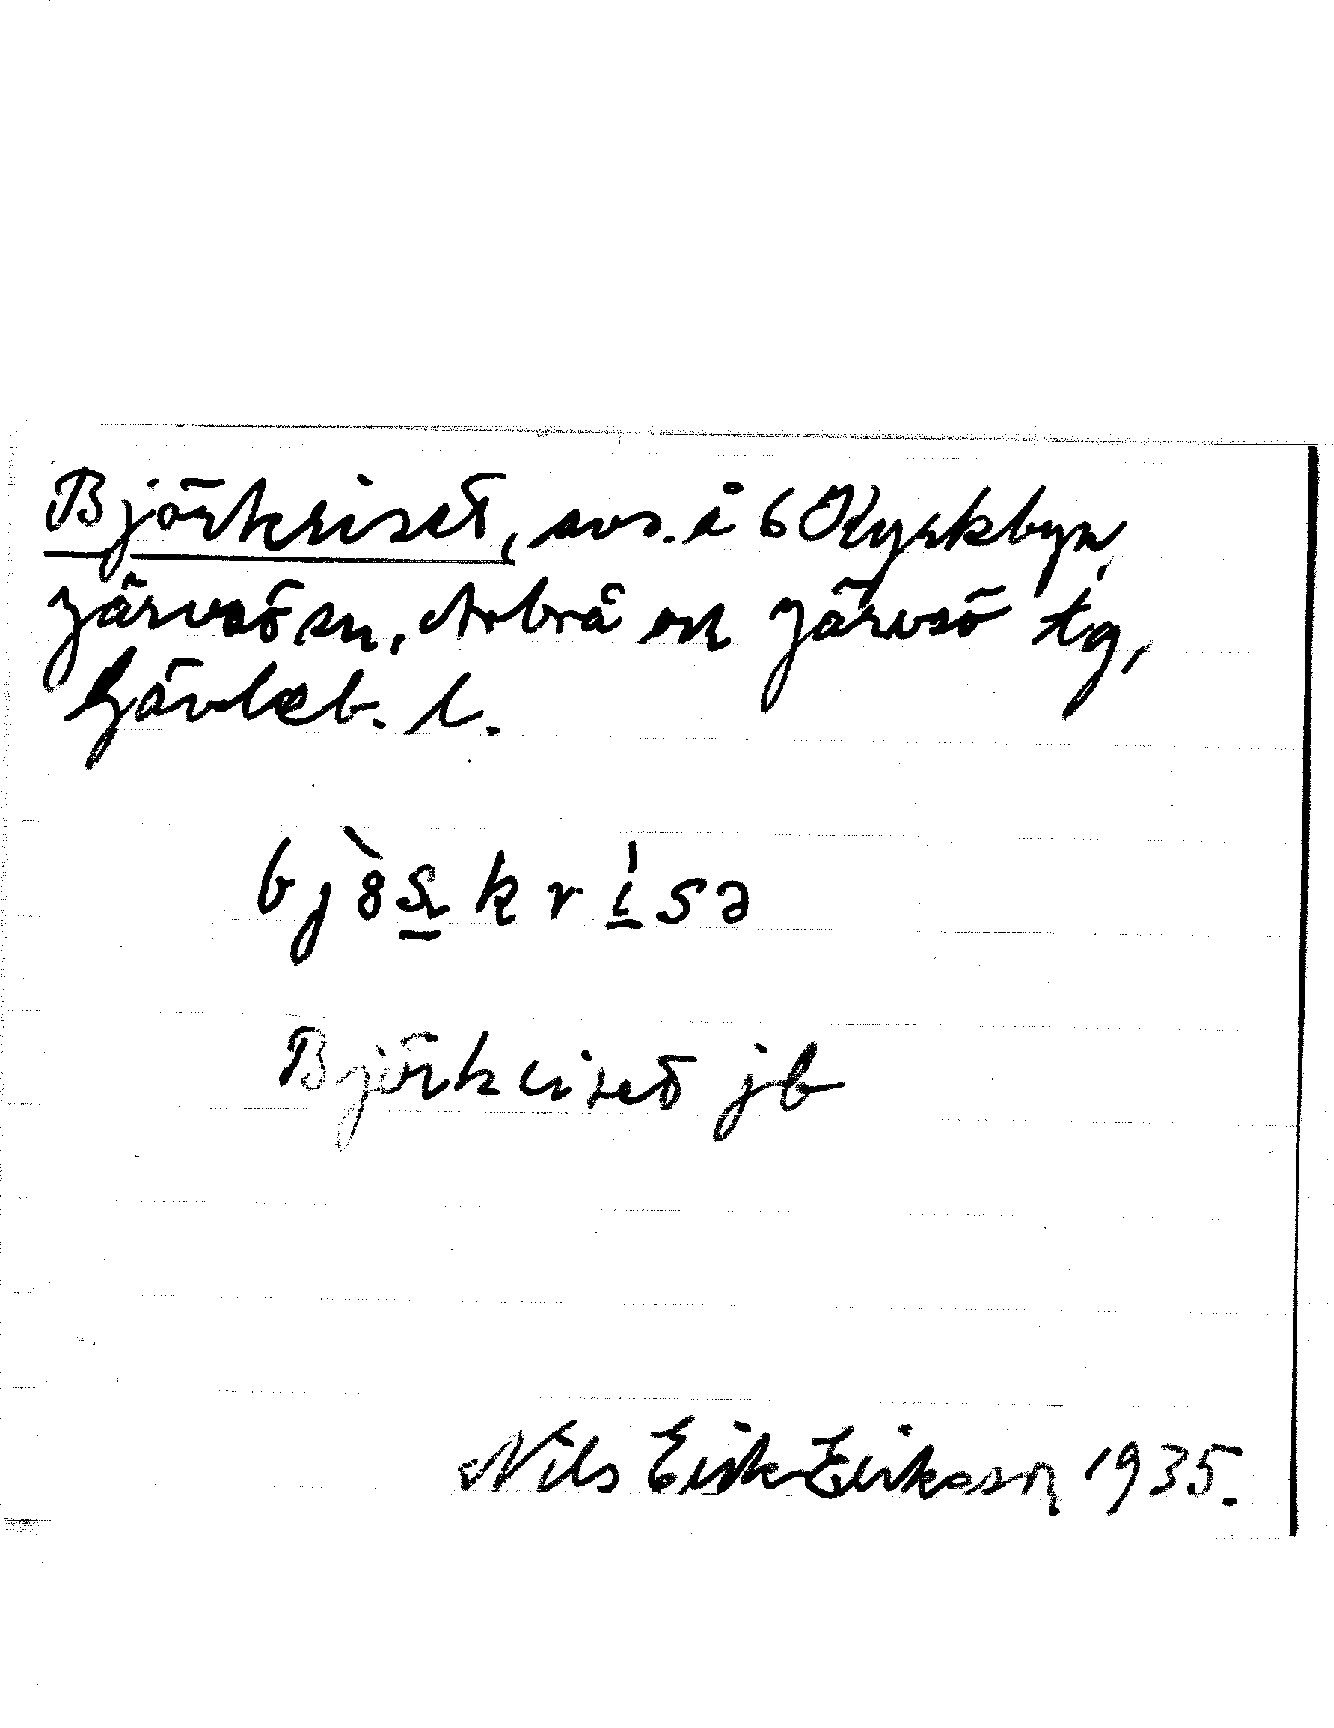 Björkriset, avs. å 6 Kyrkbyn,
Järvsö sn, Arbrå och Järvsö tg,
Gävleb. l.
Björkriset jb
Nils Erik Eriksson 1935.